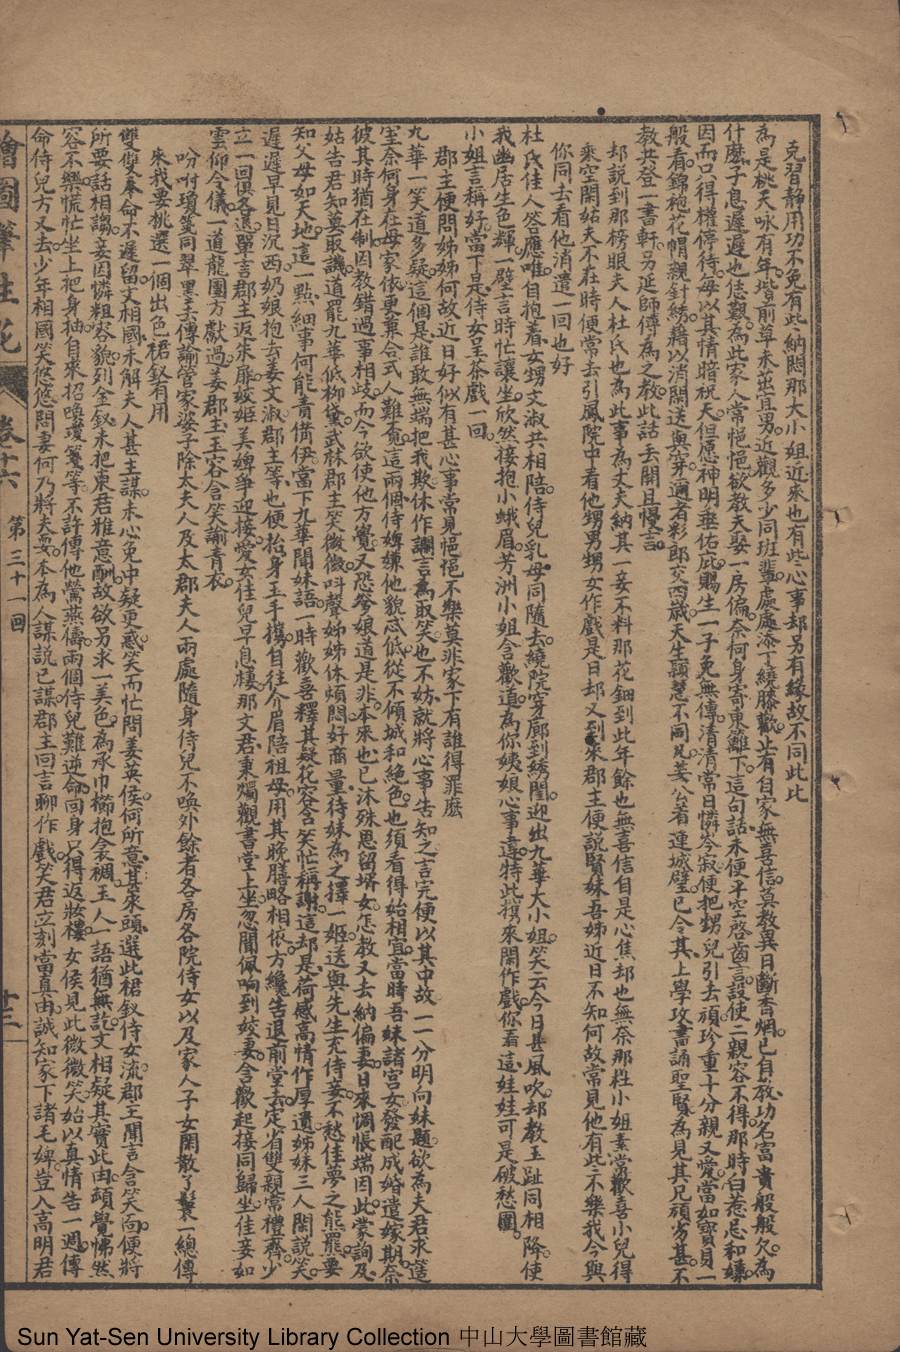 克習靜用功不免有些納悶那大小姐近來也有些心事却另有緣故不同此比
為是桃夭咏有年堦前草未茁宜男近觀多少同班輩處處添丁繞膝歡止有自家無喜信莫教異日斷香烟已自敎功名富貴般般欠為
什麼子息遲遲也恁艱為此家人常悒悒欲教夫娶一房偏奈何身寄東籬下這句話未便平空啓齒言設使二親容不得那時白惹忌和嫌
因而只得權停待每以其情暗祝天但愿神明垂佑庇賜生一子免無傳清清常日憐岑寂便把甥兒引去頑珍重十分親又愛當如寶貝一
般看錦袍花帽親針綉藉以消閒送與穿適者彩郎交四歲天生頴慧不同凡姜公着連城壁已令其上學攻書誦聖賢為見其兄頑劣甚不
教共登一書軒另延師傅為之教此話丟開且慢言
却說到那榜眼夫人杜氏也為此事為丈夫納其一妾不料那花鈿到此年餘也無喜信自是心焦却也無奈那杜小姐素常歡喜小兒得
乘空閑姑夫不在時便常去引風院中看他甥男甥女作戲是日却又到來郡主便說賢妹吾姊近日不知何故常見他有些不樂我今與
你同去看他消遣一回也好
杜氏佳人答應唯自抱着女甥文淑共相陪侍兒乳母同隨去繞院穿廊到綉闈迎出九華大小姐笑云今日甚風吹却教玉趾同相降使
我幽居生色輝一壁言時忙讓坐欣然接抱小蛾眉芳洲小姐含歡道為你姨娘心事違特此携來閑作戲你看這娃娃可是破愁圍
小姐言稱好當下是侍女呈茶戲一回
郡主便問姊姊何故近日好似有甚心事常見悒悒不樂莫非家下有誰得罪麼
九華一笑道多疑這個是誰敢無端把我欺休作讕言為取笑也不妨就將心事告知之言完便以其中故一一分明向妹題欲為夫君求簉
室奈何身在母家依更兼合式人難覓這兩個侍婢嫌他貌忒低從不傾城和絕色也須看得始相宜當時吾妹諸宮女發配成婚遣嫁期奈
彼其時猶在制因教錯過事相歧而今欲使他方覺又恐爹娘道是非本來也已沐殊恩留壻女怎教又去納偏妻日來惆悵端因此蒙詢及
姑告君知莫取譏道罷九華低柳黛武林郡主笑微微呌聲姊姊休煩悶好商量待妹為之擇一姬送與先生充侍妾不愁佳夢之能罷要
知父母如天地這一點細事何能責備伊當下九華聞妹語一時歡喜釋其疑花容含笑忙稱謝這却是荷感高情作厚遺姊妹三人閒說笑
遲遲早見日沉西奶娘抱去姜文淑郡主等也便抬身玉手携自往介眉陪祖母用其晚膳略相依方纔告退前堂去定省雙親常禮齊少
立一回俱各退單言郡主返朱扉姣姬美婢爭迎接愛女佳兒早息棲那文君秉燭觀書堂上坐忽聞佩响到姣妻含歡起接同歸坐佳妾如
雲仰令儀一道龍團方獻過姜郡主玉容含笑諭青衣
吩咐瓊箋同翠墨去傳諭管家婆子除太夫人及太郡夫人兩處隨身侍兒不喚外餘者各房各院侍女以及家人子女閑散了鬟一總傳
來我要挑選一個出色裙釵有用
雙雙奉命不遲留丈相國未解夫人甚主謀未心免中疑更惑笑而忙問姜英侯何所意其來頭選此裙釵侍女流郡主聞言含笑向便將
所要話相謅妾因憐粗容貌列金釵未把東君雅意酬故欲另求一美色為承巾櫛抱衾裯玉人一語猶無訖文相疑其實此由頡覺怫然
容不樂慌忙坐上把身抽自來招喚璦箋等不許傳他鶯燕儔兩個侍兒難逆命回身只得返妝樓女侯見此微微笑始以真情告一週傳
命侍兒方又去少年相國笑悠悠問妻何乃將夫耍本為人謀說已謀郡主回言聊作戲笑君立刻當真由誠知家下諸毛婢豈入高明君
繪圖筆生花
卷十六
第三十一回
十三
Sun Yat-Sen University Library Collection 中山大學圖書館藏